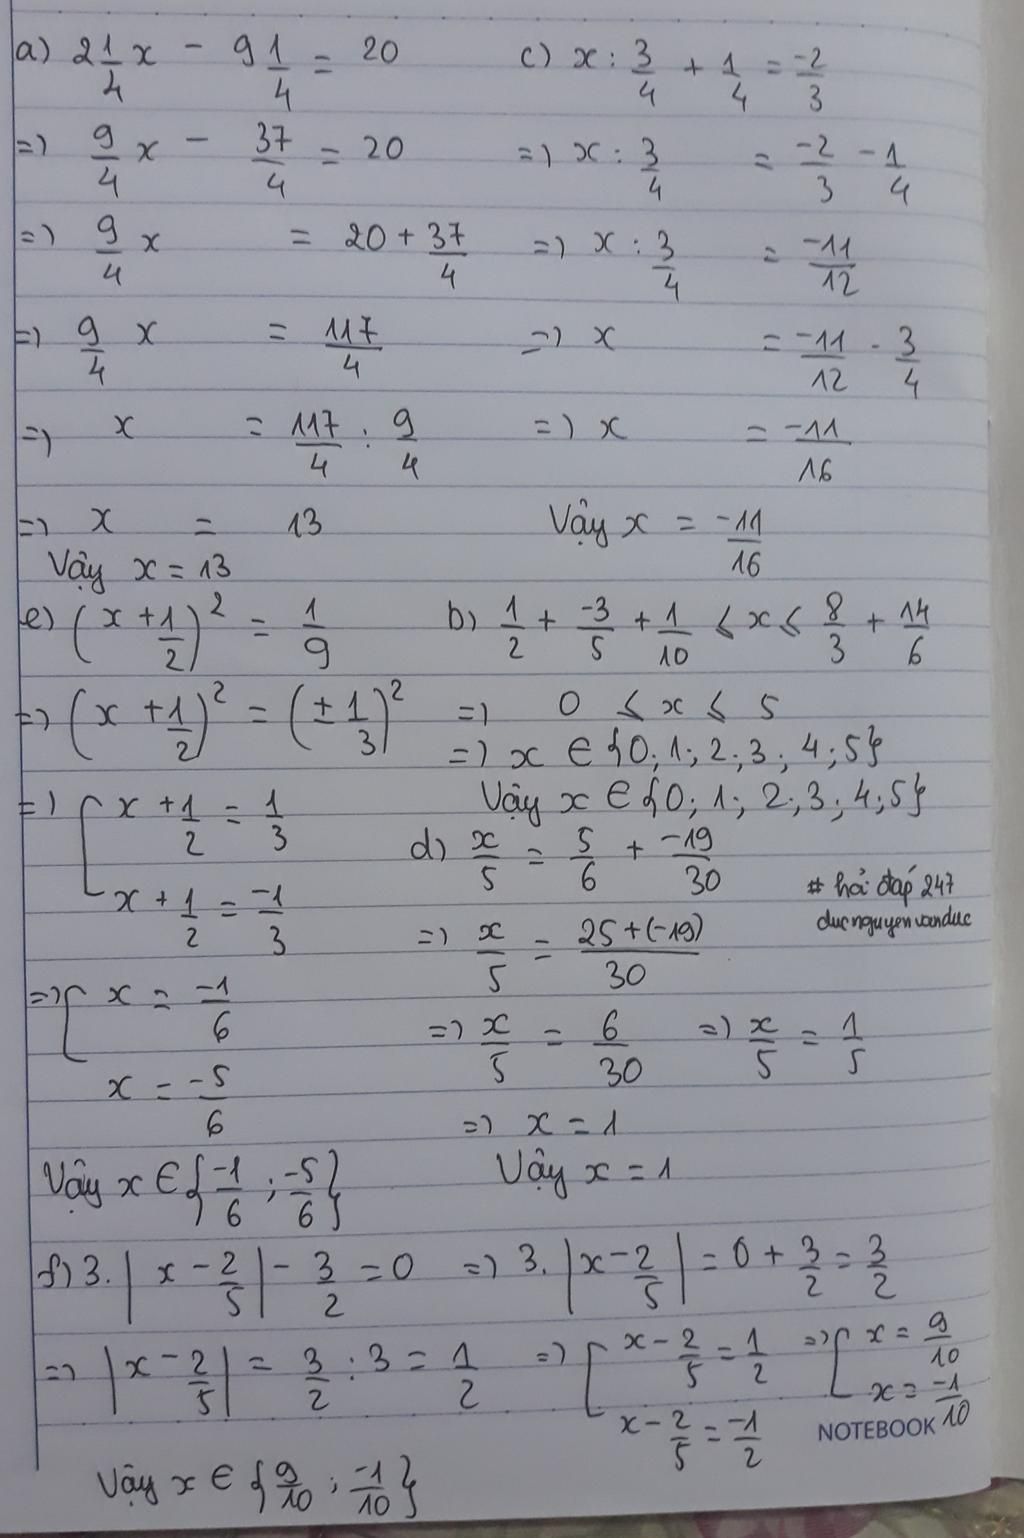 a) 2 1/4 x - 9 1/4 = 20
=> 9/4 x - 37/4 = 20
=> 9/4 x = 20 + 37/4
=> 9/4 x = 117/4
=> x = 117/4 : 9/4
=> x = 13
Vậy x = 13
c) x : 3/4 + 1/4 = -2/3
=> x : 3/4 = -2/3 - 1/4
=> x : 3/4 = -11/12
=> x = -11/12 . 3/4
=> x = -11/16
Vậy x = -11/16
e) (x + 1/2)² = 1/9
=> (x + 1/2)² = (± 1/3)²
=> [ x + 1/2 = 1/3
x + 1/2 = -1/3
=> [ x = -1/6
x = -5/6
Vậy x ∈ { -1/6 ; -5/6 }
b) 1/2 + -3/5 + 1/10 ≤ x ≤ 8/3 + 14/6
=> 0 ≤ x ≤ 5
=> x ∈ {0; 1; 2; 3; 4; 5}
Vậy x ∈ {0; 1; 2; 3; 4; 5}
d) x/5 = 5/6 + -19/30
=> x/5 = 25 + (-19)/30
=> x/5 = 6/30 => x/5 = 1/5
=> x = 1
Vậy x = 1
# hỏi đáp 247
ducnguyenvanduc
f) 3. |x - 2/5| - 3/2 = 0 => 3. |x - 2/5| = 0 + 3/2 = 3/2
=> |x - 2/5| = 3/2 : 3 = 1/2 => [ x - 2/5 = 1/2 => [ x = 9/10
x - 2/5 = -1/2 x = -1/10
NOTEBOOK
Vậy x ∈ { 9/10 ; -1/10 }